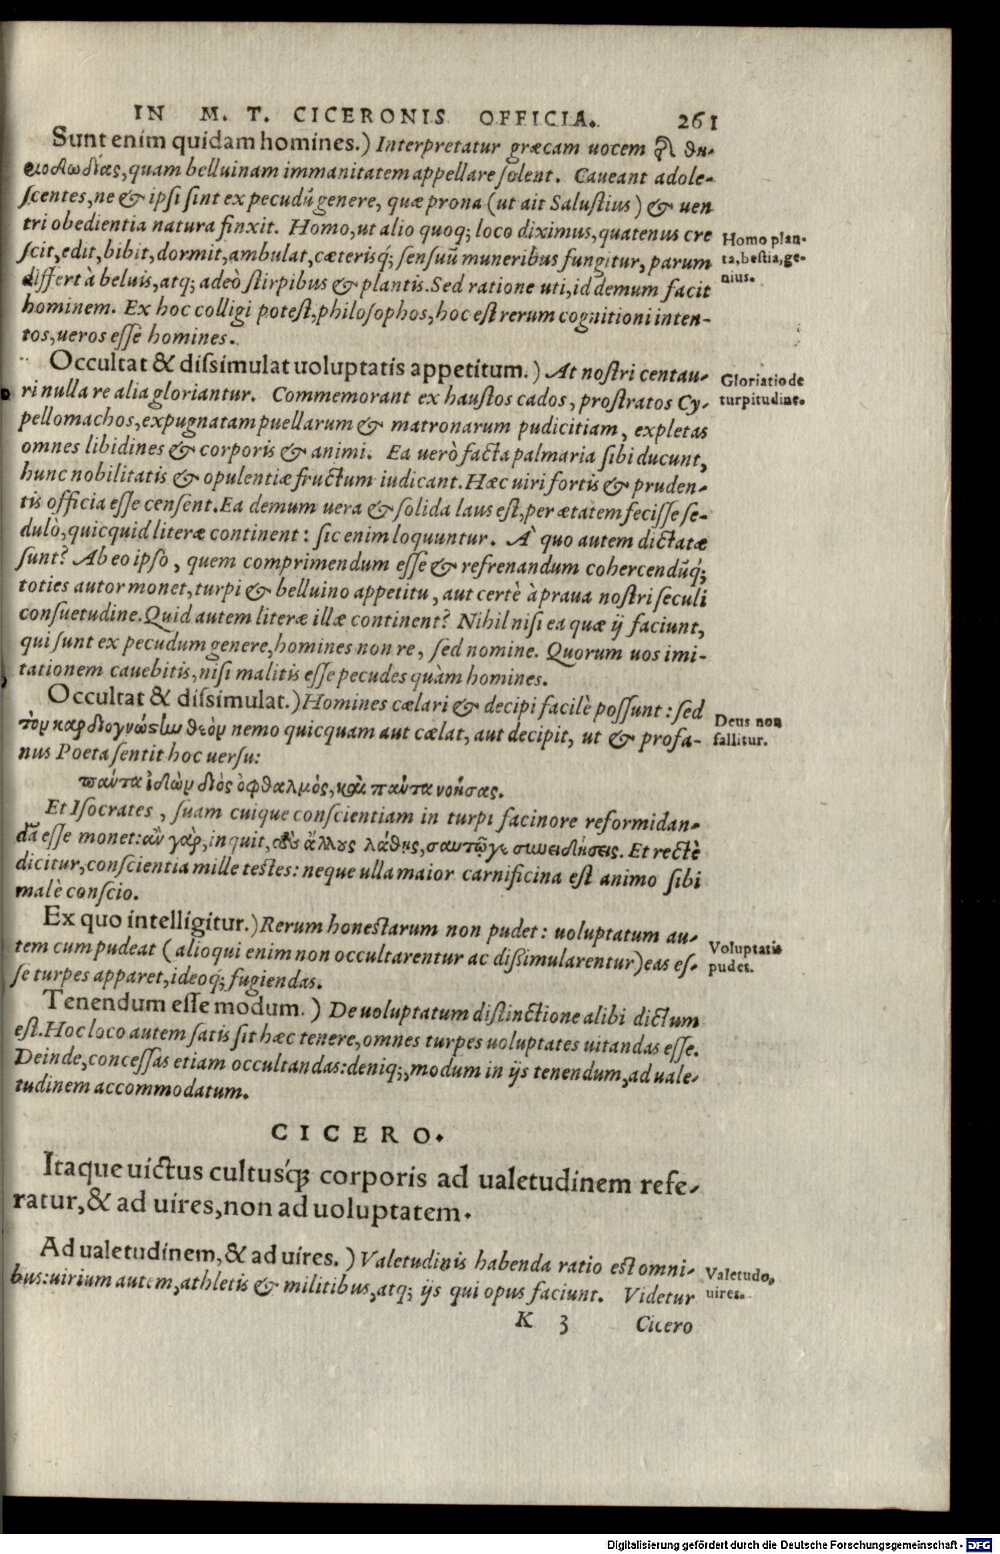 IN M. T. CICERONIS OFFICIA. 261
Sunt enim quidam homines.) Interpretatur græcam uocem τῆς θη-
ριοδωδίας, quam belluinam immanitatem appellare solent. Caueant adole-
scentes, ne & ipsi sint ex pecudũ genere, quæ prona (ut ait Salustius) & uen
tri obedientia natura finxit. Homo, ut alio quoq; loco diximus, quatenus cre
scit, edit, bibit, dormit, ambulat, cæterisq́; sensuũ muneribus fungitur, parum
differt à beluis, atq; adeò stirpibus & plantis. Sed ratione uti, id demum facit
hominem. Ex hoc colligi potest, philosophos, hoc est rerum cognitioni inten-
tos, ueros esse homines.
Homo plan-
ta, bestia, ge-
nius.
Occultat & dissimulat uoluptatis appetitum.) At nostri centau-
ri nulla re alia gloriantur. Commemorant exhaustos cados, prostratos Cy-
pellomachos, expugnatam puellarum & matronarum pudicitiam, expletas
omnes libidines & corporis & animi. Ea uerò facta palmaria sibi ducunt,
hunc nobilitatis & opulentiæ fructum iudicant. Hæc uiri fortis & pruden-
tis officia esse censent. Ea demum uera & solida laus est, per ætatem fecisse se-
dulò, quicquid literæ continent: sic enim loquuntur. À quo autem dictatæ
sunt? Ab eo ipso, quem comprimendum esse & refrenandum cohercendũq́;
toties autor monet, turpi & belluino appetitu, aut certè à praua nostri seculi
consuetudine. Quid autem literæ illæ continent? Nihil nisi ea quæ ij faciunt,
qui sunt ex pecudum genere, homines non re, sed nomine. Quorum uos imi-
tationem cauebitis, nisi malitis esse pecudes quàm homines.
Gloriatio de
turpitudine.
Occultat & dissimulat.) Homines cælari & decipi facilè possunt: sed
τὸν καρδιογνώστην θεὸν nemo quicquam aut cælat, aut decipit, ut & profa-
nus Poeta sentit hoc uersu:
Deus non
fallitur.
πάντα ἰδὼν διὸς ὀφθαλμὸς, καὶ πάντα νοήσας.
Et Isocrates, suam cuique conscientiam in turpi facinore reformidan-
dã esse monet: ἂν γὰρ, inquit, τοὺς ἄλλους λάθῃς, σαυτῷγε συνειδήσεις. Et rectè
dicitur, conscientia mille testes: neque ulla maior carnificina est animo sibi
malè conscio.
Ex quo intelligitur.) Rerum honestarum non pudet: uoluptatum au-
tem cum pudeat (alioqui enim non occultarentur ac dissimularentur) eas es-
se turpes apparet, ideoq́; fugiendas.
Voluptatis
pudet.
Tenendum esse modum.) De uoluptatum distinctione alibi dictum
est. Hoc loco autem satis sit hæc tenere, omnes turpes uoluptates uitandas esse.
Deinde, concessas etiam occultandas: deniq;, modum in ijs tenendum, ad uale-
tudinem accommodatum.
CICERO.
Itaque uictus cultusq́; corporis ad ualetudinem refe-
ratur, & ad uires, non ad uoluptatem.
Ad ualetudinem, & ad uires.) Valetudinis habenda ratio est omni-
bus: uirium autem, athletis & militibus, atq; ijs qui opus faciunt. Videtur
Valetudo,
uires.
K 3 Cicero
Digitalisierung gefördert durch die Deutsche Forschungsgemeinschaft - DFG